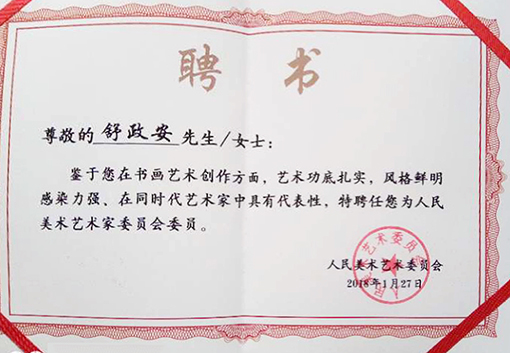 聘书
尊敬的 舒政安 先生/女士：
鉴于您在书画艺术创作方面，艺术功底扎实，风格鲜明
感染力强、在同时代艺术家中具有代表性，特聘任您为人民
美术艺术家委员会委员。
人民美术艺术委员会
2018年1月27日